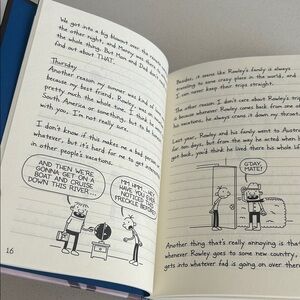 We got into a big blowout over the
the other night, and Manny was
the whole thing. But Mom and Dad don't
find out about THAT.
Thursday
Another reason my summer was kind of
because my best friend, Rowley, was on
pretty much the whole time. I think he
South America or something, but to be
with you, I'm not really sure.
I don't know if this makes me a bad person
whatever, but it's hard for me to get
in other people's vacations.
AND THEN WE'RE
GONNA GET ON A
BOAT AND CRUISE
DOWN THIS RIVER...
MM, HMM... HEY,
HAVE YOU EVER
NOTICED THIS
FRECKLE BEFORE?
16
Besides, it seems like Rowley's family is always
traveling to some crazy place in the world, and
I can never keep their trips straight.
The other reason I don't care about Rowley's trips
is because whenever Rowley comes back from one of
his vacations, he always crams it down my throat.
Last year, Rowley and his family went to Austr
for ten days, but from the way he acted when
got back, you'd think he lived there his whole li
G'DAY,
MATE!
Another thing that's really annoying is that
whenever Rowley goes to some new country,
gets into whatever fad is going on over there